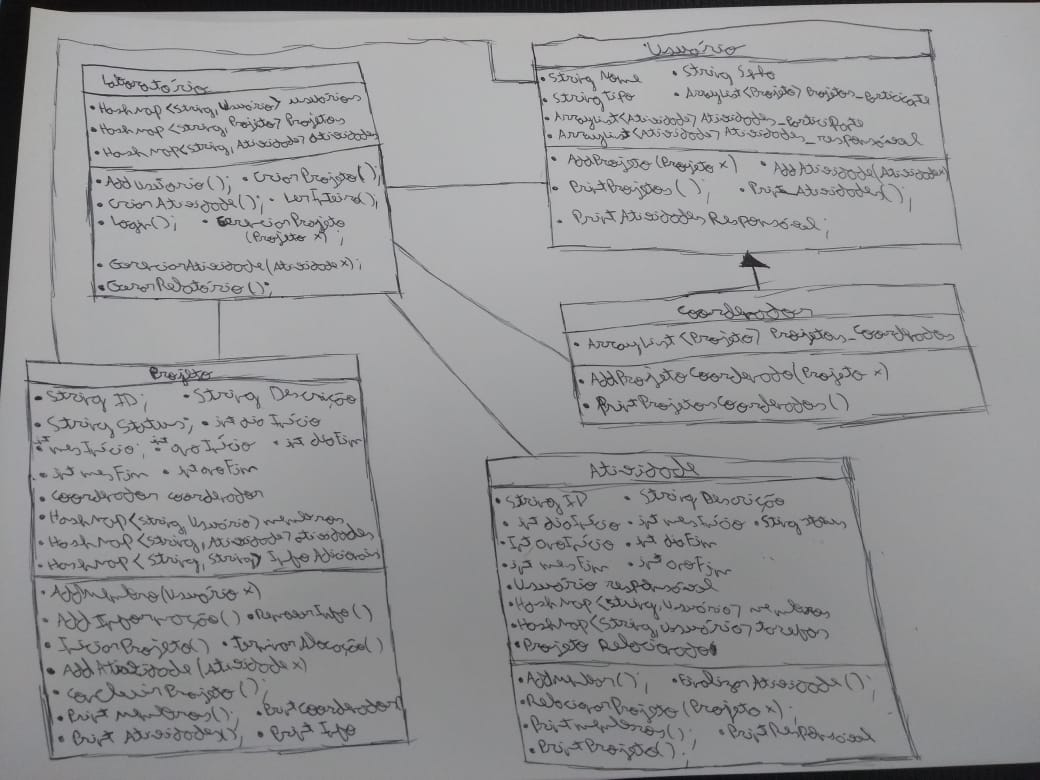 Laboratório
• HashMap <String, Usuário> usuários
• HashMap <String, Projeto> Projetos
• HashMap <String, Atividade> Atividades
• AddUsuário(); • CriarProjeto();
• CriarAtividade(); • LerInteiro();
• Login(); • GerenciarProjeto
(Projeto x);
• GerenciarAtividade(Atividade x);
• GerarRelatório();
Usuário
• String Nome • String
• String Tipo • ArrayList<Projeto> Projetos_Participate
• ArrayList<Atividade> Atividades_Participate
• ArrayList<Atividade> Atividades_responsável
• AddProjeto(Projeto x) • AddAtividade(Atividade x)
• PrintProjetos(); • Print_Atividades();
• PrintAtividadesResponsável;
Coordenador
• ArrayList <Projeto> Projetos_Coordenados
• AddProjetoCoordenado(Projeto x)
• PrintProjetosCoordenados()
Projeto
• String ID; • String Descrição
• String Status; • int diaInício
• int mesInício; • int anoInício • int diaFim
• int mesFim • int anoFim
• Coordenador coordenador
• HashMap<String, Usuário> membros
• HashMap<String, Atividade> atividades
• HashMap<String, String> Info Adicionais
• AddMembro(Usuário x)
• AddInformação() • RemoverInfo()
• IniciarProjeto() • TerminarAlocação()
• AddAtividade (Atividade x)
• ConcluirProjeto();
• Print membros(); • PrintCoordenador()
• Print Atividades(); • Print Info
Atividade
• String ID • String Descrição
• int diaInício • int mesInício • String status
• Int anoInício • int diaFim
• int mesFim • int anoFim
• Usuário responsável
• HashMap <String, Usuário> membros
• HashMap <String, Usuário> tarefas
• Projeto Relacionado
• AddMembro(); • FinalizarAtividade();
• RelacionarProjeto(Projeto x);
• Printmembros(); • PrintResponsável
• PrintProjeto();